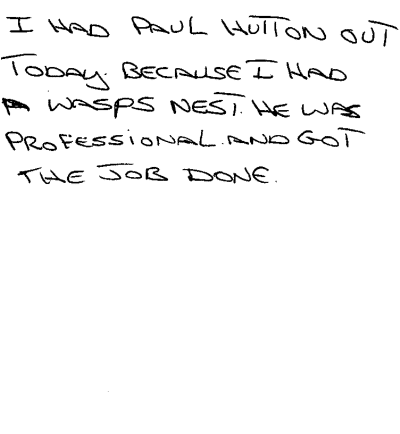 I HAD PAUL HUTTON OUT
TODAY. BECAUSE I HAD
A WASPS NEST. HE WAS
PROFESSIONAL. AND GOT
THE JOB DONE.